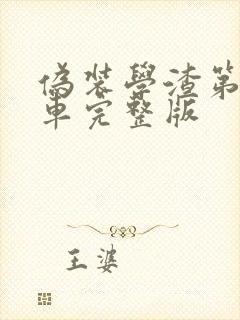 偽裝學渣第
車完整版
王婆